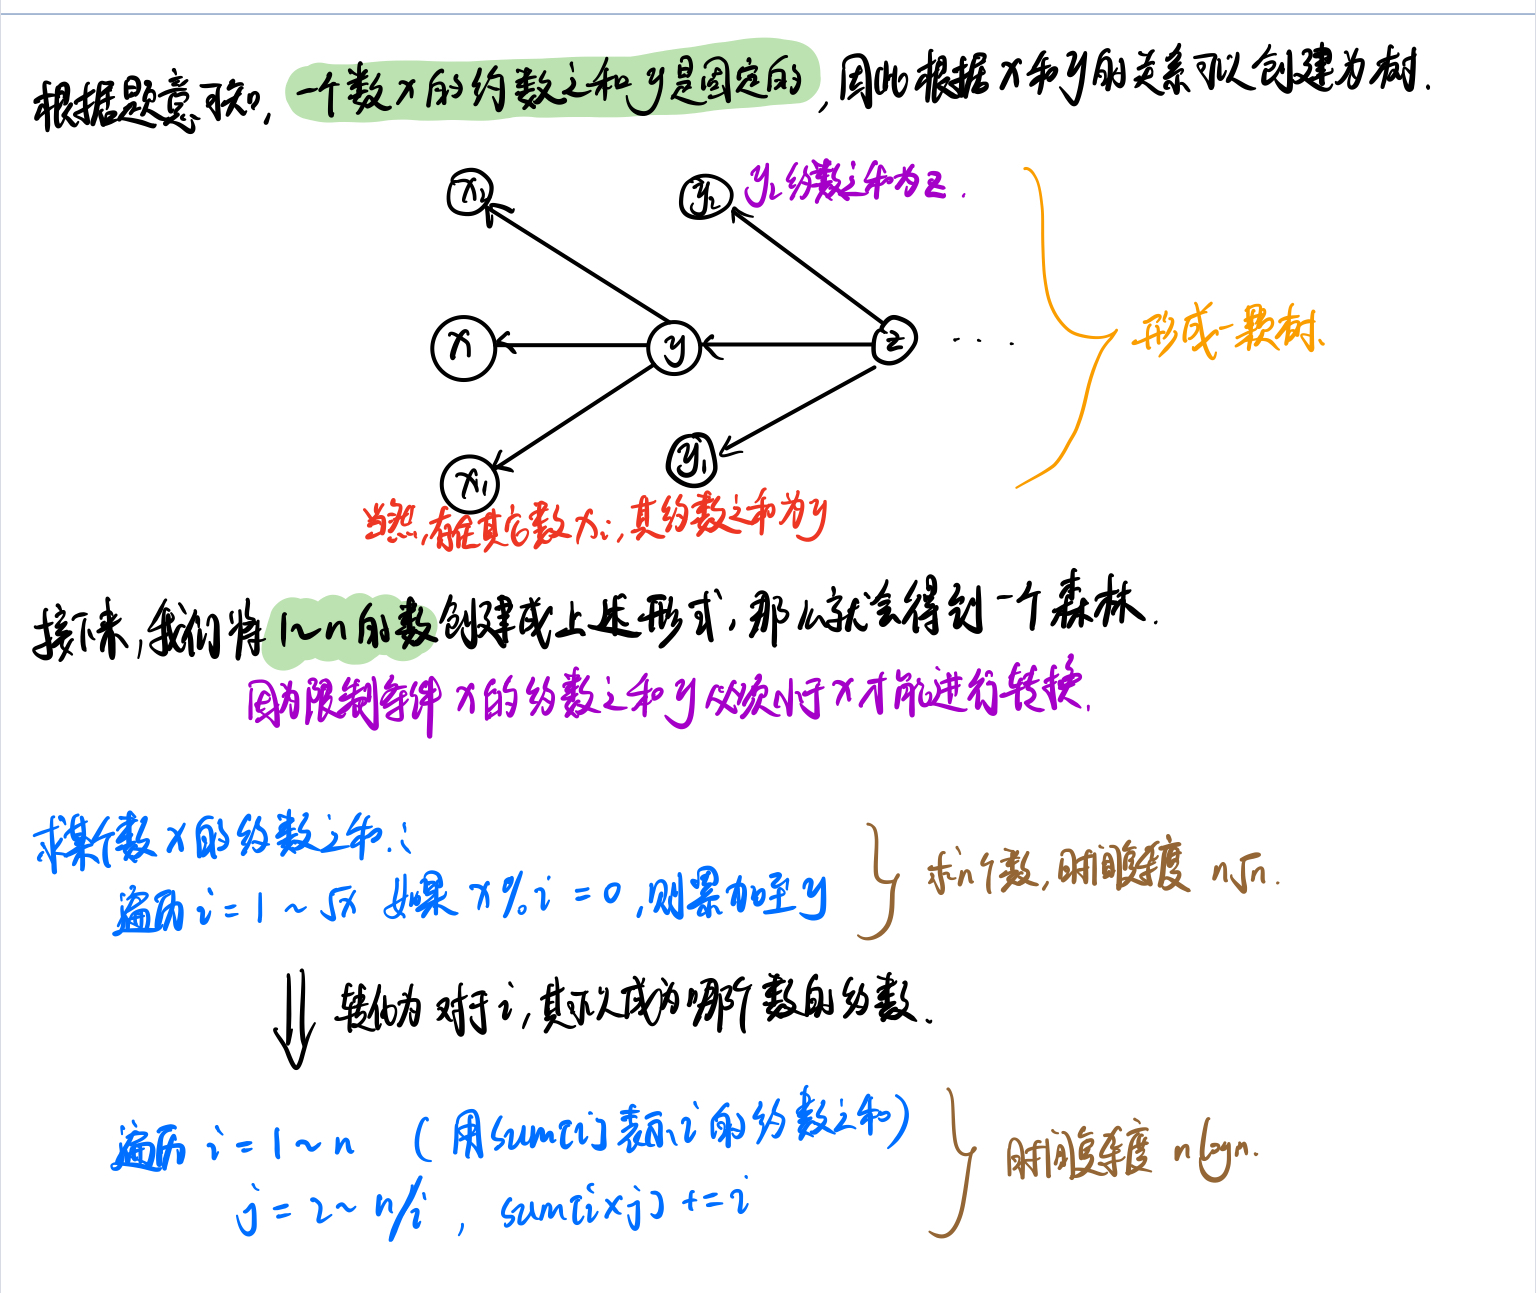 根据题意可知,一个数x的约数之和y是固定的,因此根据x和y的关系可以创建为树.
x₂
y₂
y₂约数之和为z.
x
y
z
...
形成一颗树、
x₁
y₁
当然,存在其它数xᵢ,其约数之和为y
接下来,我们将1~n的数创建成上述形式,那么就会得到一个森林.
因为限制条件x的约数之和y必须小于x才能进行转换.
求某个数x的约数之和:
遍历i=1~√x 如果x%i=0,则累加至y
求n个数,时间复杂度 n√n.
转化为对于i,其可以成为哪个数的约数.
遍历i=1~n (用sum[i]表示i的约数之和)
j=2~n/i, sum[i×j]+=i
时间复杂度 nlogn.